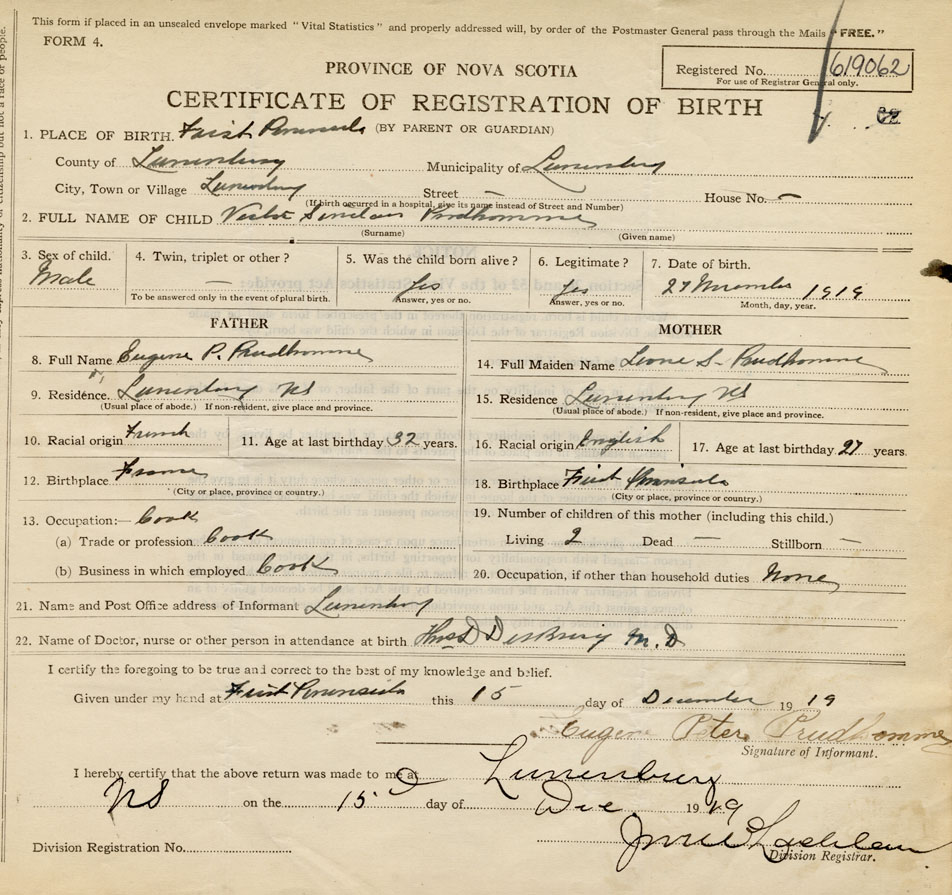 This form if placed in an unsealed envelope marked "Vital Statistics" and properly addressed will, by order of the Postmaster General pass through the Mails "FREE."
FORM 4.
Registered No. 619062
For use of Registrar General only.
PROVINCE OF NOVA SCOTIA
CERTIFICATE OF REGISTRATION OF BIRTH
1. PLACE OF BIRTH. First Peninsula (BY PARENT OR GUARDIAN)
County of Lunenburg Municipality of Lunenburg
City, Town or Village Lunenburg Street — House No. —
(If birth occurred in a hospital, give its name instead of Street and Number)
2. FULL NAME OF CHILD Sinclair Prudhomme
(Surname) (Given name)
3. Sex of child. 4. Twin, triplet or other? 5. Was the child born alive? 6. Legitimate? 7. Date of birth.
Male — Yes Yes 27 November 1919
To be answered only in the event of plural birth. Answer, yes or no. Answer, yes or no. Month, day, year.
FATHER MOTHER
8. Full Name Eugene P. Prudhomme 14. Full Maiden Name Leone S. Prudhomme
9. Residence. Lunenburg NS 15. Residence Lunenburg NS
(Usual place of abode.) If non-resident, give place and province. (Usual place of abode.) If non-resident, give place and province.
10. Racial origin French 11. Age at last birthday 32 years. 16. Racial origin English 17. Age at last birthday 27 years.
12. Birthplace France 18. Birthplace First Peninsula
(City or place, province or country.) (City or place, province or country.)
13. Occupation:— Cook 19. Number of children of this mother (including this child.)
(a) Trade or profession Cook Living 2 Dead — Stillborn —
(b) Business in which employed Cook 20. Occupation, if other than household duties None
21. Name and Post Office address of Informant Lunenburg
22. Name of Doctor, nurse or other person in attendance at birth M.D
I certify the foregoing to be true and correct to the best of my knowledge and belief.
Given under my hand at First Peninsula this 15 day of December 19 19
Eugene Peter Prudhomme
Signature of Informant.
I hereby certify that the above return was made to me at Lunenburg
NS on the 15 day of Dec 19 19
Division Registration No. Division Registrar.